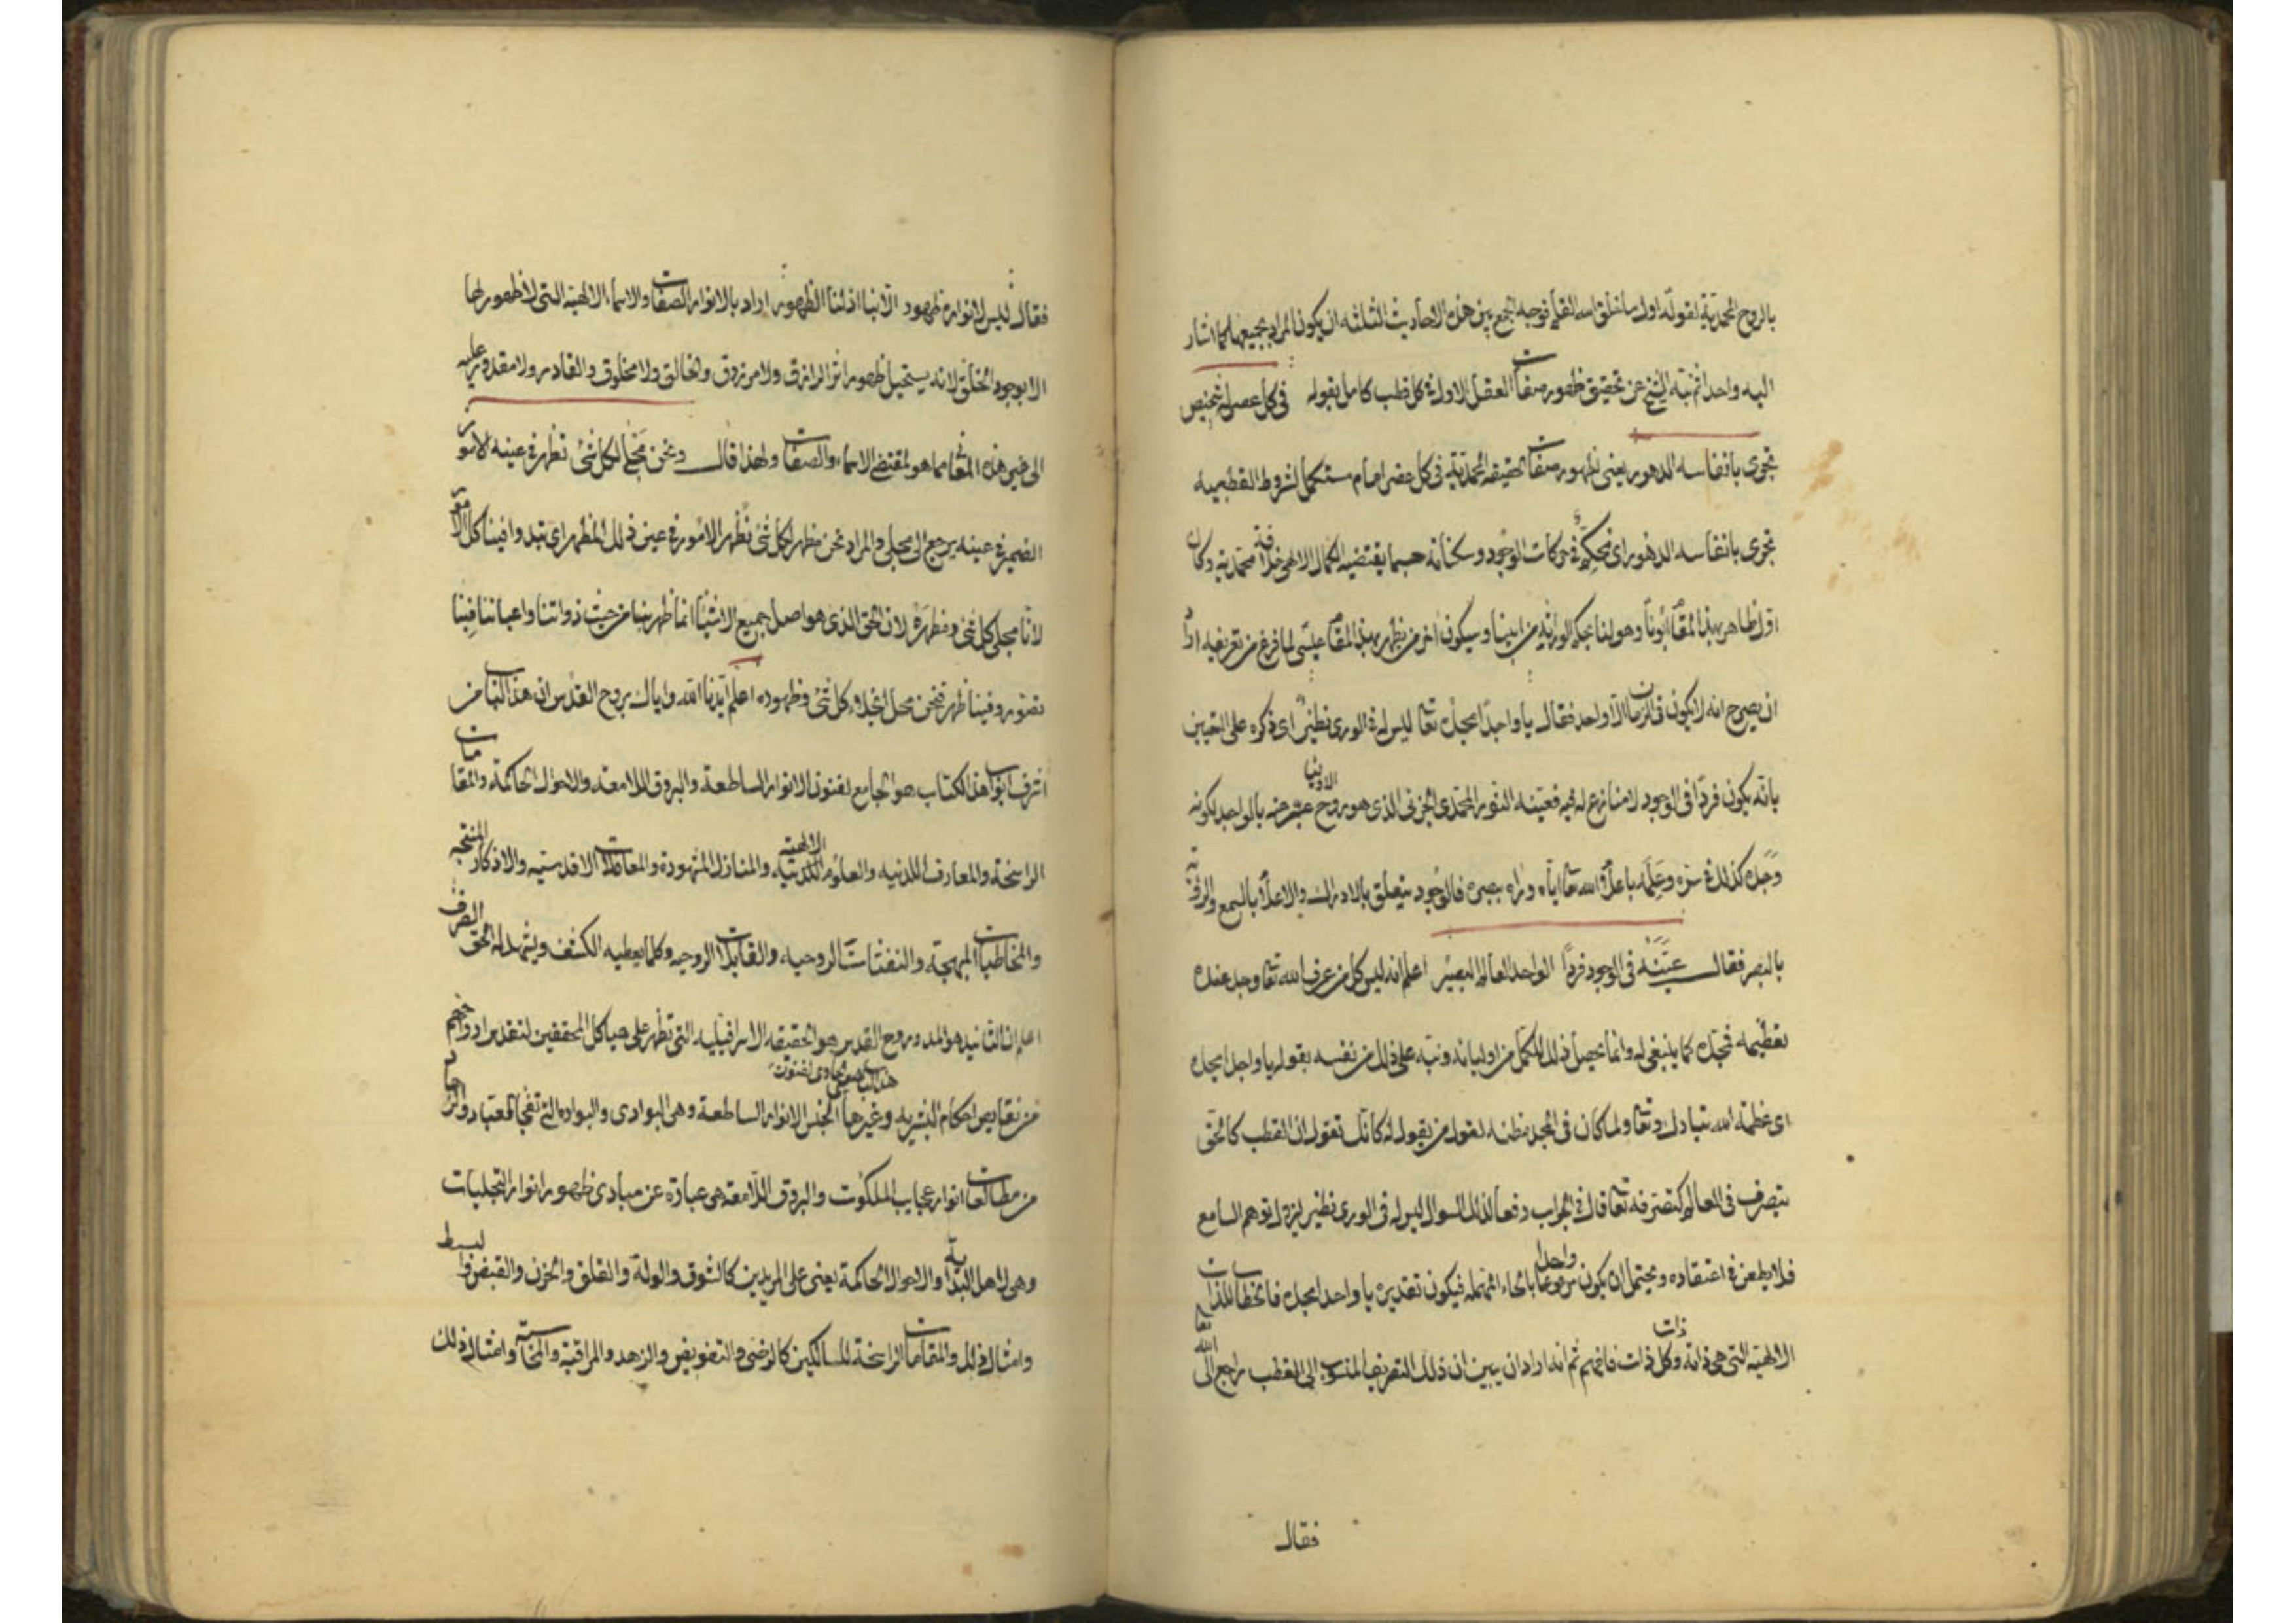 بالروح المحمدية لقوله اول ما خلق الله القلم فوجه الجمع بين هذه الاحاديث الثلثه ان يكون المراد بجميعها مما اشار
اليه واحد اثم نبه الشيخ عن تحقيق ظهور صفات العقل الاول في كل قطب كامل بقوله في كل عصر شخص
تجرى بانفاسه الدهور يعنى لظهور صفات الحقيقه المحمدية فى كل عصر امام مستكمل لشروط القطبيه
تجرى بانفاسه الدهور اى تحكم فى حركات الوجود وسكناته حسبما يقتضيه الكمال الالهى خلافة محمدية وكان
اول ظاهر بهذا المقام ابونا وهو لنا بحكم الوراثه من ابينا وسيكون اخر من يظهر بهذا المقام عيسى لما فرغ من تعريفه اراد
ان يصرح انه لا يكون فى الزمان الا واحد فقال يا واحدا مجده تعا ليس له فى الورى نظير اى ذكره على التعيين
بانه يكون فردا فى الوجود لا منازع له فيه فعينه النور المحمدى الجزئى الذى هو روح بالواحد لكونه
وجده كذلك فى سره وعلمه باعلام الله تعا اياه وراه ببصره فالوجود يتعلق بالادراك والاعلام بالسمع والرؤية
بالبصر فقال عينته فى الوجود فردا الواحد العالم البصير اعلم انه ليس كل من عرف الله تعا وجل عنده
تعظيمه فمجده كما ينبغى له وانما يحصل ذلك للكمل من اوليائه ونبه على ذلك من نفسه بقوله يا واحدا مجده
اى عظمة الله تبارك وتعا ولما كان فى المجد مظنه لقول من يقول له كانك تقول ان القطب كالحق
يتصرف فى العالم كتصرفه تعا قال فى الجواب دفعا لذلك السوال ليس له فى الورى نظير ليزول توهم السامع
فلا يطعن فى اعتقاده ويحتمل ان يكون واحدا مرفوعا بالحاء المهمله فيكون تقديره يا واحدا مجده فالخطاب للذات
الالهية التى هى ذاته وكل ذات ذات فافهم ثم انه اراد ان يبين ان ذلك التصريف المنسوب الى القطب راجع الى الله تعا
فقال
فقال ليس لانواره ظهور الا بنا اذ لنا الظهور اراد بالانوار الصفات والاسماء الالهية التى لا ظهور لها
الا بوجود الخلق لانه يستحيل ظهور اثر الرازق ولا مرزوق والخالق ولا مخلوق والقادر ولا مقدور عليه
الى غير هذه المقام مما هو لمقتضى الاسماء والصفات ولهذا قال ونحن مجلى لكل شئ تظهر فى عينه الامور
الضمير فى عينه يرجع الى مجلى والمراد نحن مظهر لكل شئ تظهر الامور فى عين ذلك المظهر اى تبدوا فينا كل الامور
لانا مجلى كل شئ ومظهره لان الحق الذى هو اصل جميع الاشيا انما ظهر بنا من حيث ذواتنا واعياننا فبنا
تصور وفينا ظهر فنحن محل انجلاء كل شئ وظهوره اعلم ايدنا الله واياك بروح القدس ان هذا الباب من
اشرف ابواب هذا الكتاب هو الجامع لفنون الانوار الساطعة والبروق اللامعة والاحوال الحاكمة والمقامات
الراسخة والمعارف اللدنيه والعلوم الالهية والمنازل المشهودة والمعاملات الاقدسيه والاذكار المنتجه
والمخاطبات المبهجة والنفثات الروحيه والقابلات الروحيه وكلما يعطيه الكشف ويشهد له الحق الصرف
اعلم ان التائيد هو المدد وروح القدس هو الحقيقه الاسرافيليه التى تظهر على هياكل المحققين لتقديس ارواحهم
هذا الباب حاوى لفنون
من نقايص احكام البشريه وغيرها الجنس الانوار الساطعة وهى البوادى والبواده التى تفجا
من مطالعات انوار عجايب الملكوت والبروق اللامعة هى عبارة عن مبادى ظهور انوار التجليات
وهى لاهل البداية والاحوال الحاكمة يعنى على المريدين كالشوق والوله والقلق والحزن والقبض والبسط
وامثال ذلك والمقامات الراسخة للسالكين كالرضى والتفويض والزهد والمراقبة والمحاسبة وامثال ذلك